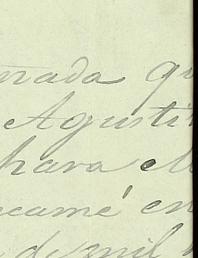 nada qu
Agusti
hara el
camé en
de mil